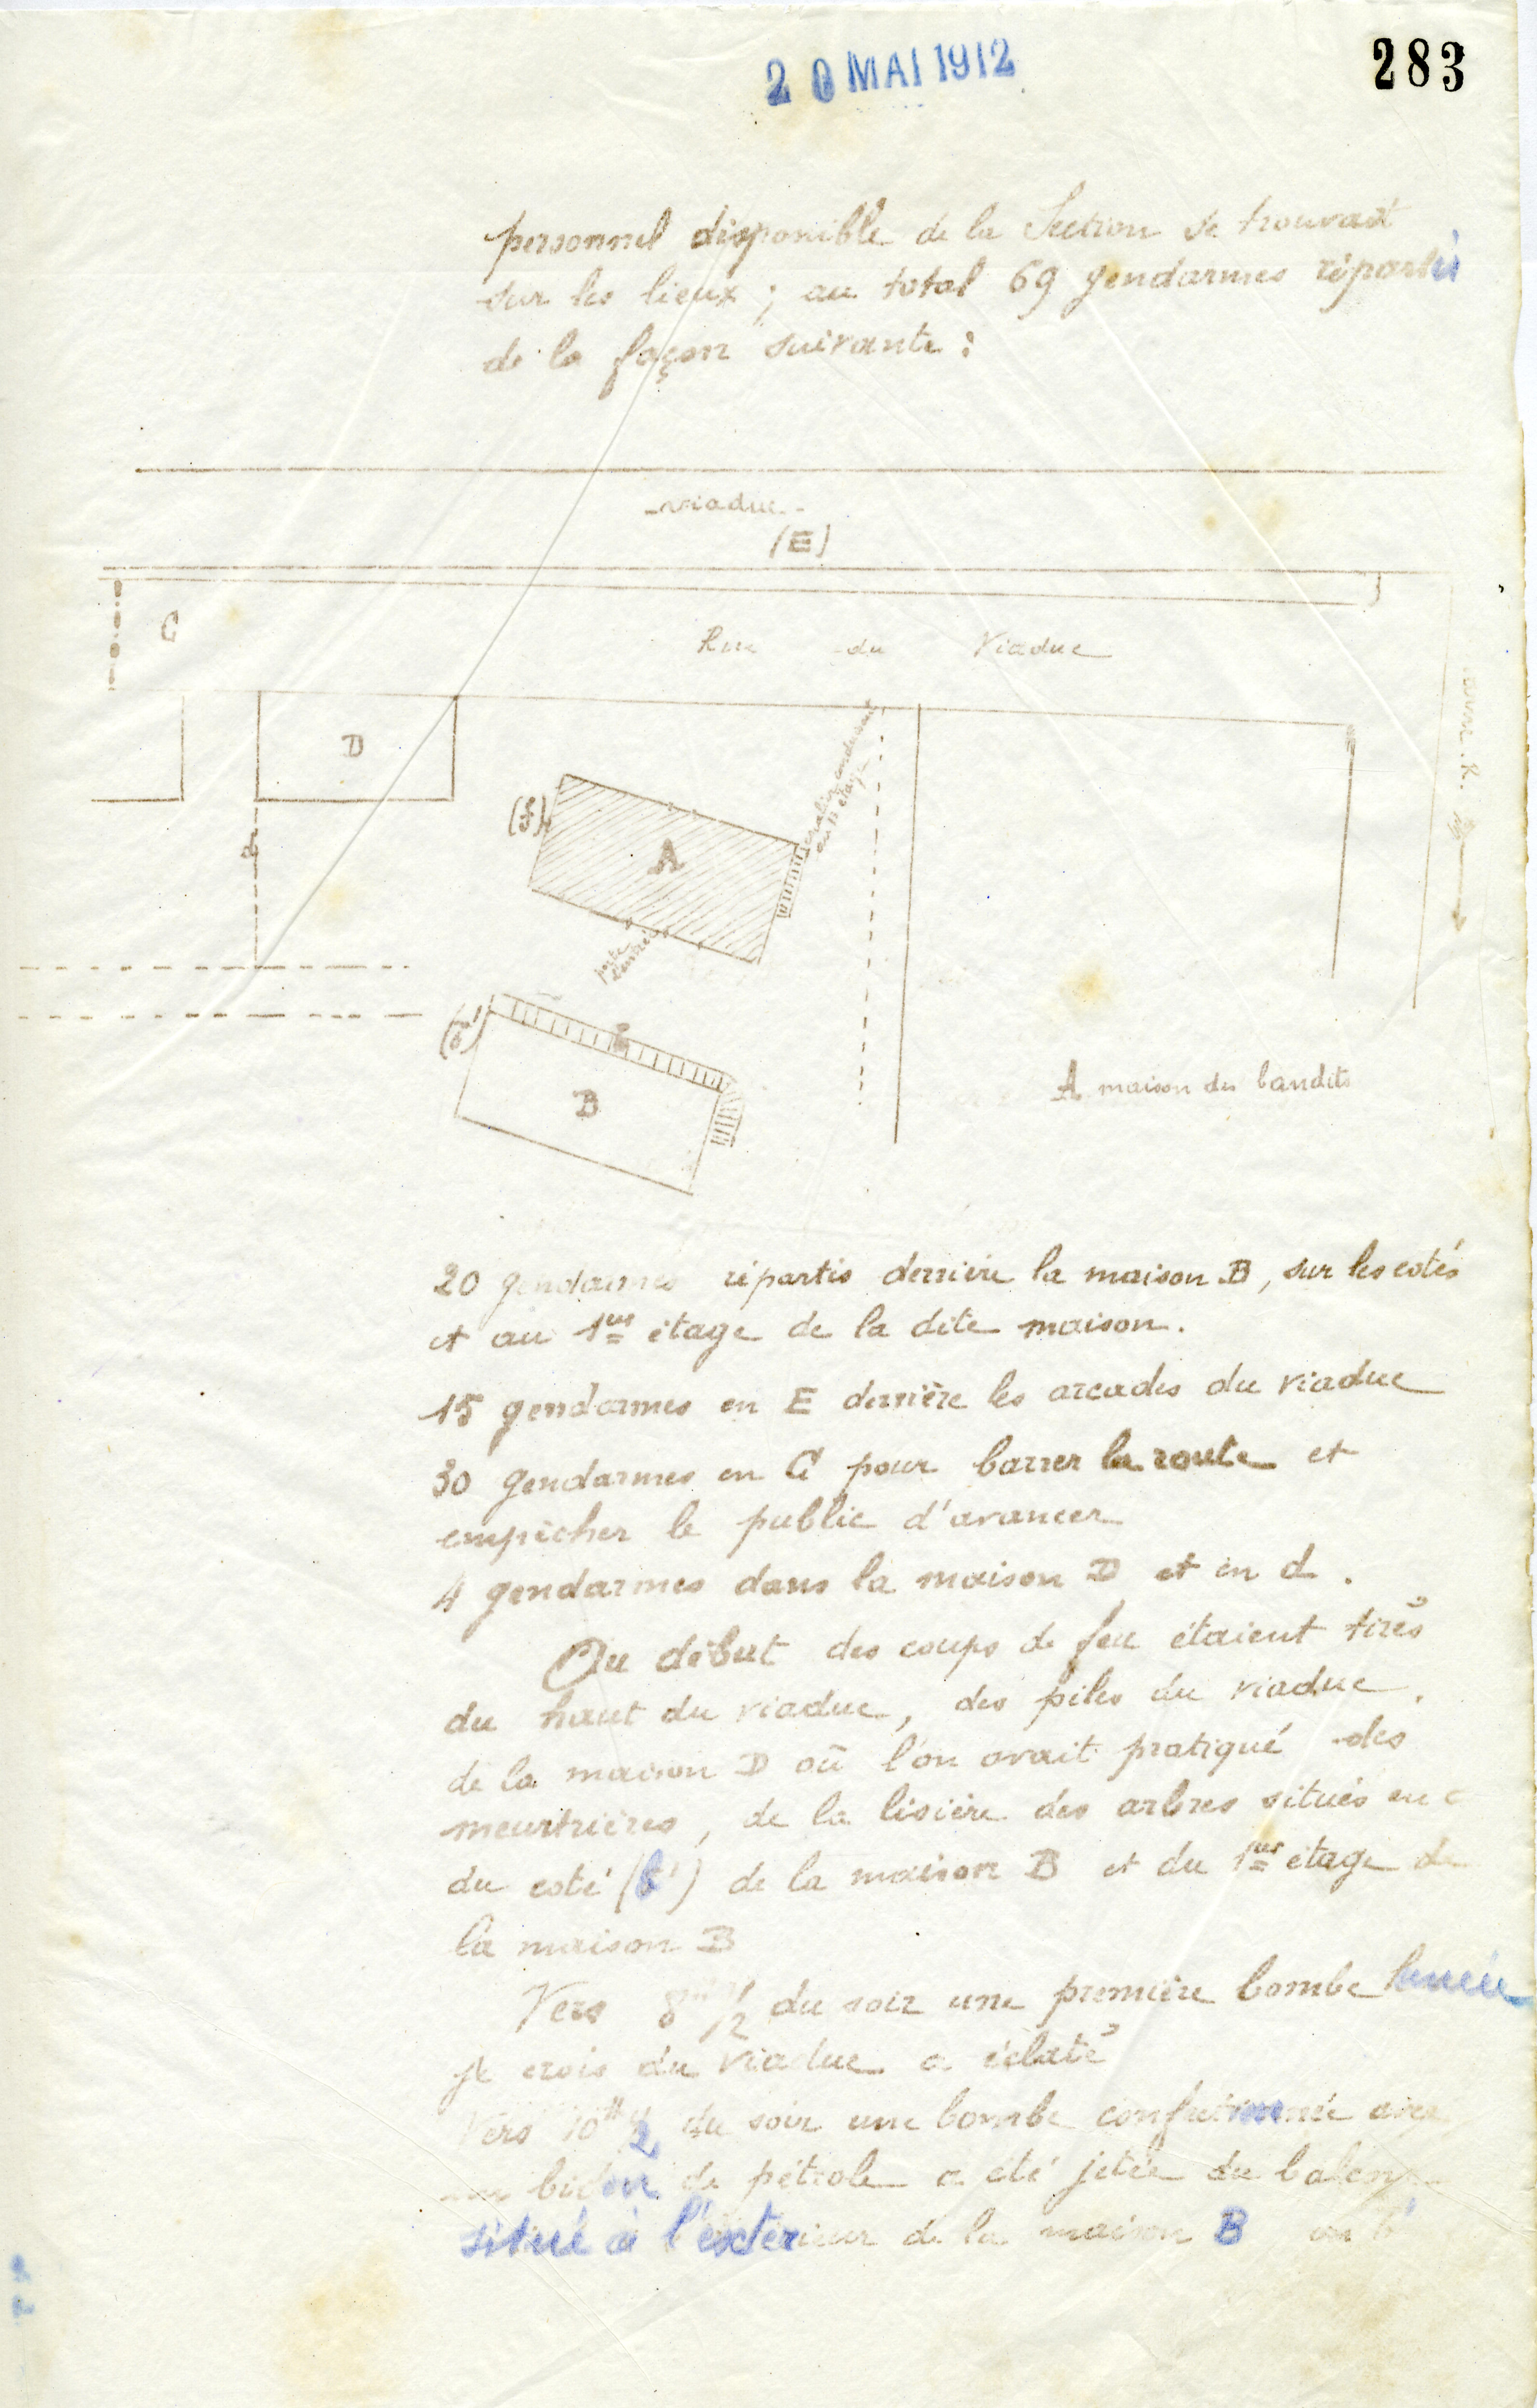 283
20 MAI 1912
personnel disponible de la Section se trouvait
sur les lieux ; au total 69 gendarmes répartis
de la façon suivante :
viaduc
(E)
C
Rue du Viaduc
D
d
A
escalier conduisant
au 1er étage
porte
d'entrée
B
A maison des bandits
20 gendarmes répartis derrière la maison B, sur les cotés
et au 1er étage de la dite maison.
15 gendarmes en E derrière les arcades du viaduc
30 gendarmes en C pour barrer la route et
empêcher le public d'avancer
4 gendarmes dans la maison D et en d.
Au début des coups de feu étaient tirés
du haut du viaduc, des piles du viaduc,
de la maison D où l'on avait pratiqué des
meurtrières, de la lisière des arbres situés en c
du coté (b') de la maison B et du 1er étage de
la maison B
Vers 8h 1/2 du soir une première bombe lancée
je crois du viaduc a éclaté
Vers 10H 1/2 du soir une bombe confectionnée avec
un bidon de pétrole a été jetée du balcon
situé à l'extérieur de la maison B en b'